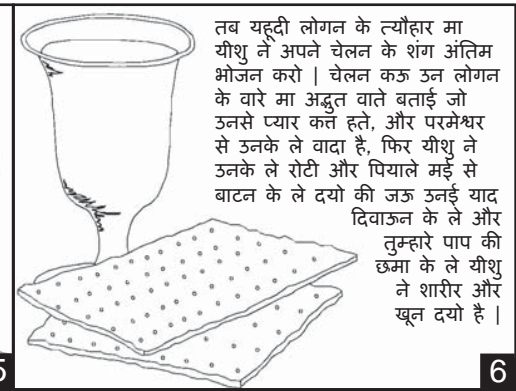 तब यहूदी लोगन के त्यौहार मा
यीशु ने अपने चेलन के शंग अंतिम
भोजन करो | चेलन कऊ उन लोगन
के वारे मा अद्भुत वाते बताई जो
उनसे प्यार कत्त हते, और परमेश्वर
से उनके ले वादा है, फिर यीशु ने
उनके ले रोटी और पियाले मई से
बाटन के ले दयो की जऊ उनई याद
दिवाऊन के ले और
तुम्हारे पाप की
छमा के ले यीशु
ने शारीर और
खून दयो है |
5
6